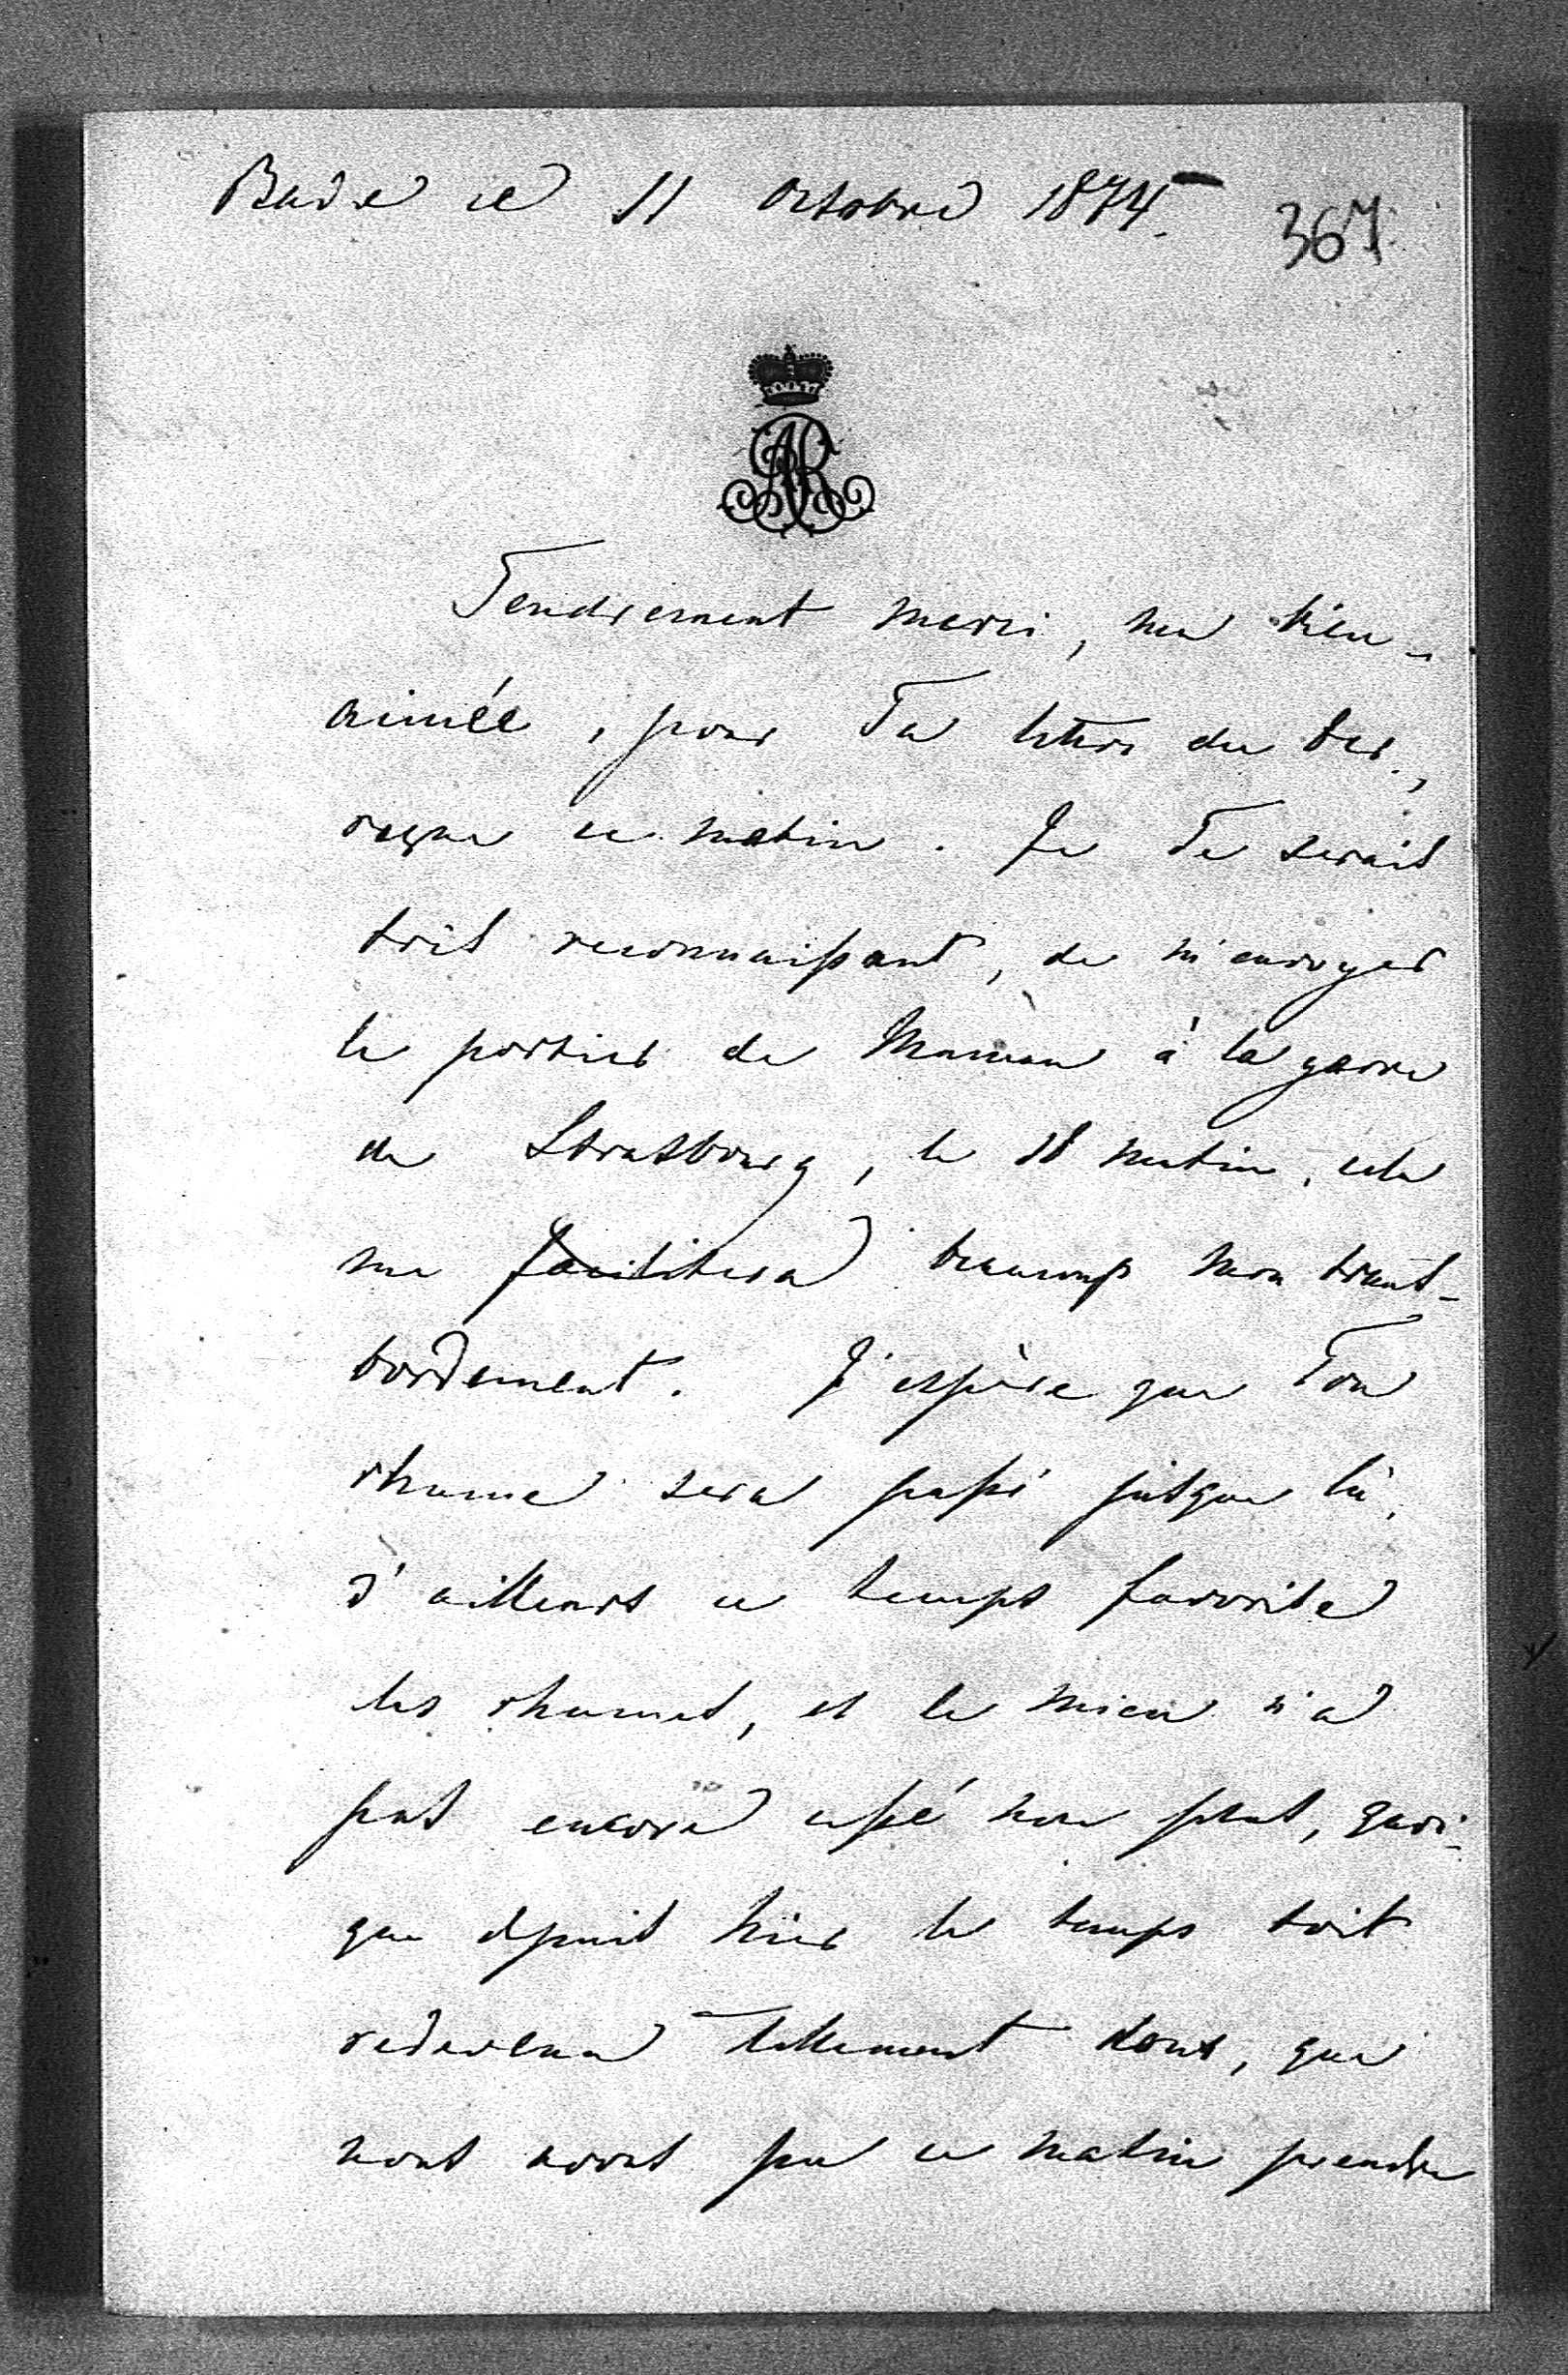 Bade ce 11 octobre 1874.
367.
AR
Tendrement merci, ma bien-
aimée, pour Ta lettre du
reçue ce matin. Je Te serais
très reconnaissant, de m'envoyer
le portier de Maman à la garre
de Strasbourg, le 18 matin, cela
me facilitera beaucoup mon trans-
bordement. J'espère que Ton
rhume sera passé jusque là,
d'ailleurs ce temps favorise
les rhumes, et le mien n'a
pas encore cessé non plus, quoi-
que depuis hier le temps soit
redevenu tellement doux, que
nous avons pu ce matin prendre